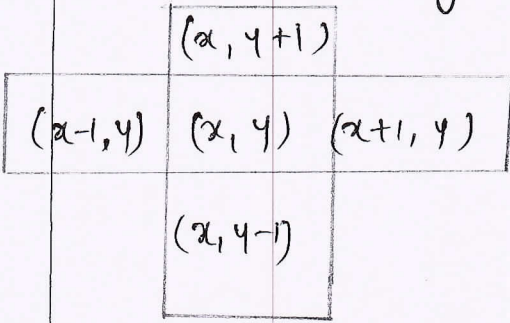 (x, y+1)
(x-1, y) (x, y) (x+1, y)
(x, y-1)